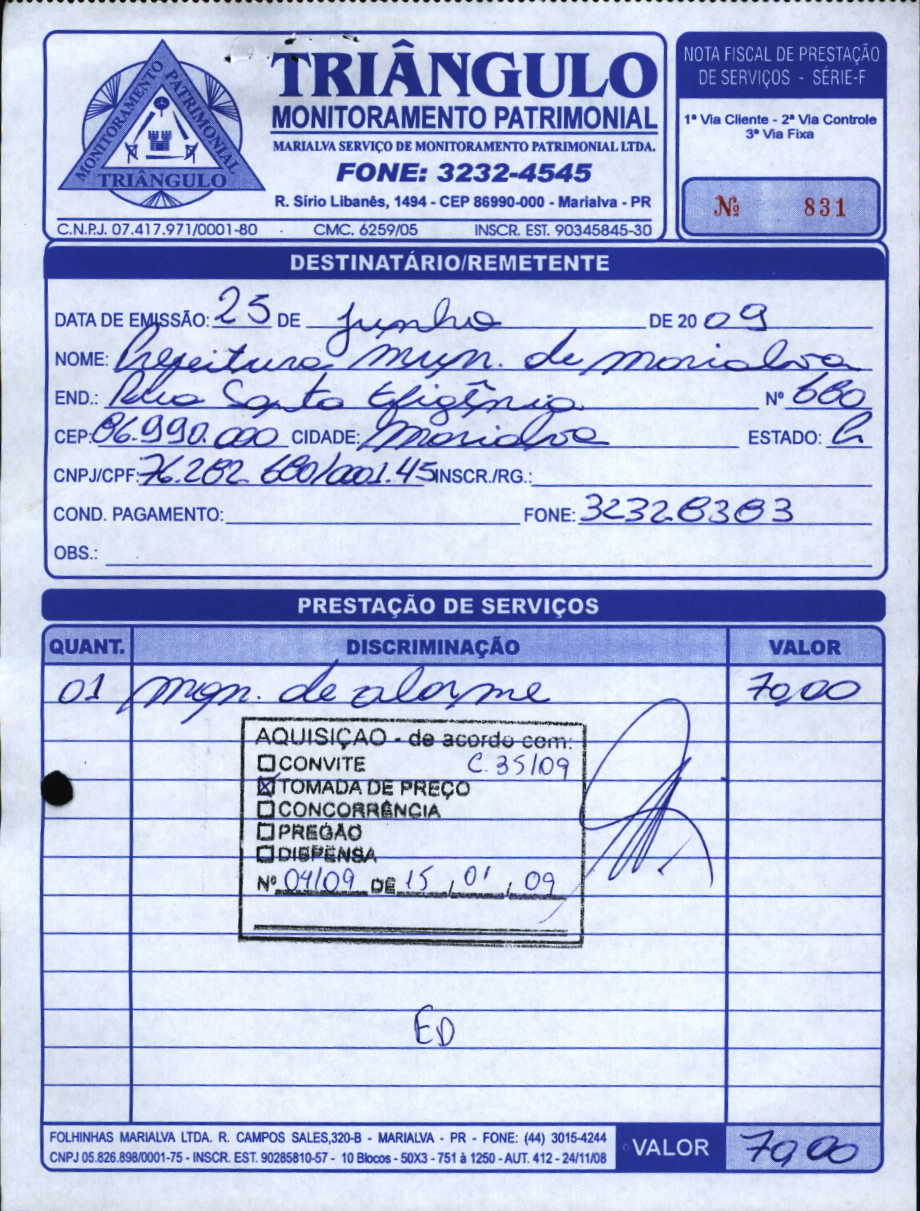 MONITORAMENTO PATRIMONIAL
TRIÂNGULO
TRIÂNGULO
MONITORAMENTO PATRIMONIAL
MARIALVA SERVIÇO DE MONITORAMENTO PATRIMONIAL LTDA.
FONE: 3232-4545
R. Sírio Libanês, 1494 - CEP 86990-000 - Marialva - PR
C.N.P.J. 07.417.971/0001-80 CMC. 6259/05 INSCR. EST. 90345845-30
NOTA FISCAL DE PRESTAÇÃO
DE SERVIÇOS - SÉRIE-F
1ª Via Cliente - 2ª Via Controle
3ª Via Fixa
Nº 831
DESTINATÁRIO/REMETENTE
DATA DE EMISSÃO: 25 DE Junho DE 2009
NOME: Prefeitura Mun. de Marialva
END.: Rua Santa Efigênia Nº 680
CEP: 86.990.000 CIDADE: Marialva ESTADO: Pr
CNPJ/CPF: 76.282.680/0001.45 INSCR./RG.:
COND. PAGAMENTO: FONE: 32328383
OBS.:
PRESTAÇÃO DE SERVIÇOS
QUANT. DISCRIMINAÇÃO VALOR
01 Mon. de alarme 70,00
AQUISIÇÃO - de acordo com:
CONVITE C. 35/09
TOMADA DE PREÇO
CONCORRÊNCIA
PREGÃO
DISPENSA
Nº 04/09 DE 15 / 01 / 09
ED
FOLHINHAS MARIALVA LTDA. R. CAMPOS SALES,320-B - MARIALVA - PR - FONE: (44) 3015-4244
CNPJ 05.826.898/0001-75 - INSCR. EST. 90285810-57 - 10 Blocos - 50X3 - 751 à 1250 - AUT. 412 - 24/11/08
VALOR 70,00